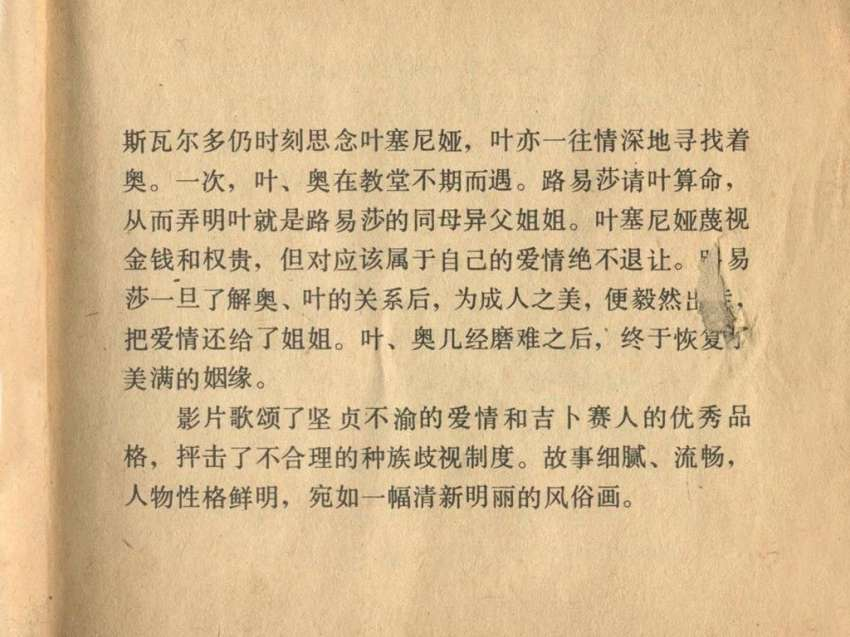 斯瓦尔多仍时刻思念叶塞尼娅，叶亦一往情深地寻找着
奥。一次，叶、奥在教堂不期而遇。路易莎请叶算命，
从而弄明叶就是路易莎的同母异父姐姐。叶塞尼娅蔑视
金钱和权贵，但对应该属于自己的爱情绝不退让。路易
莎一旦了解奥、叶的关系后，为成人之美，便毅然出走，
把爱情还给了姐姐。叶、奥几经磨难之后，终于恢复了
美满的姻缘。
影片歌颂了坚贞不渝的爱情和吉卜赛人的优秀品
格，抨击了不合理的种族歧视制度。故事细腻、流畅，
人物性格鲜明，宛如一幅清新明丽的风俗画。